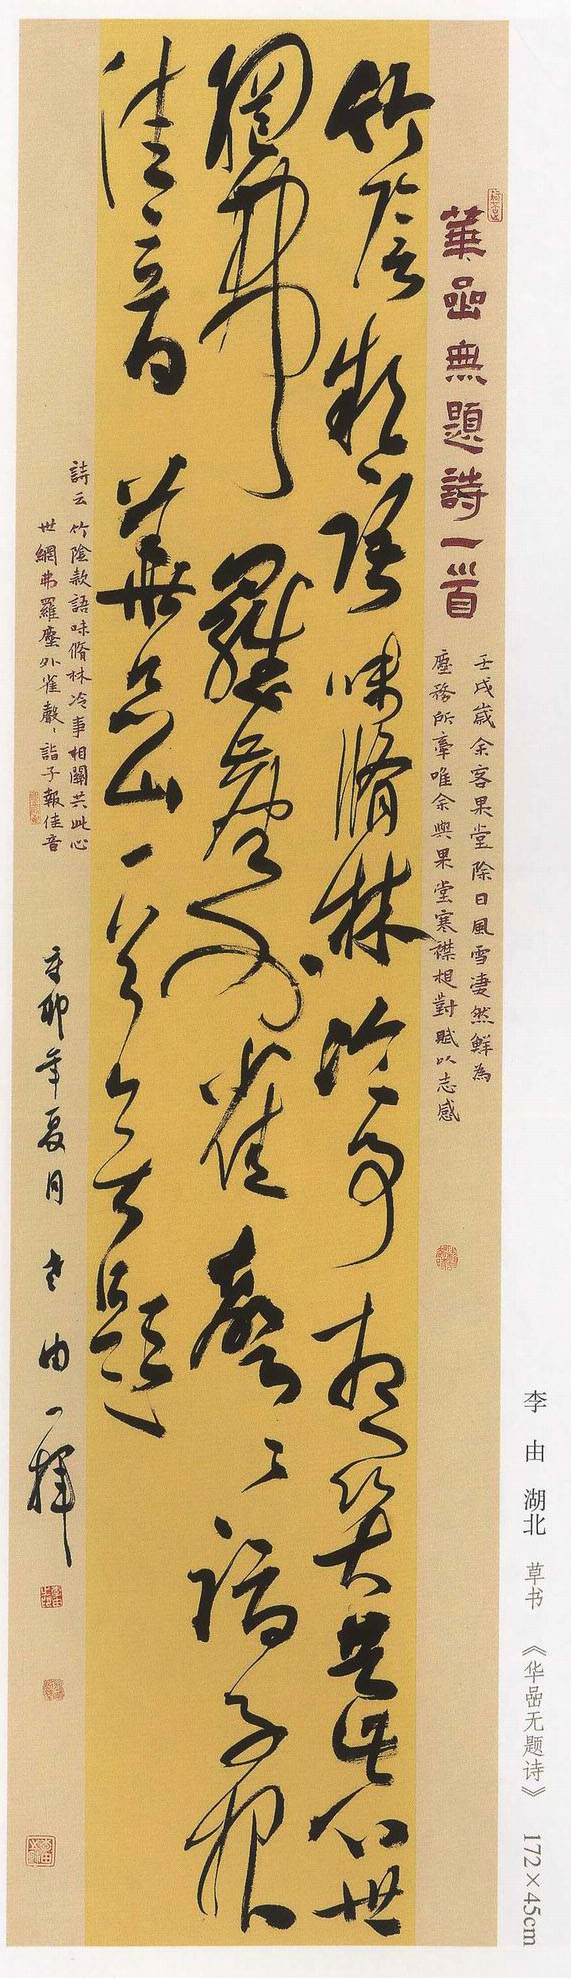 李由 湖北 草书 《华喦无题诗》 172×45cm
華喦無題詩一首
壬戌歲余客果堂除日風雪淒然鮮為
塵務所牽唯余與果堂寒襟相對賦以志感
竹陰款語味脩林冷事相關共此心世
網弗羅塵外雀聲〻詣子報
佳音 華喦 題
詩云 竹陰款語味脩林冷事相關共此心
世網弗羅塵外雀聲〻詣子報佳音
辛卯年夏月 李由一揮